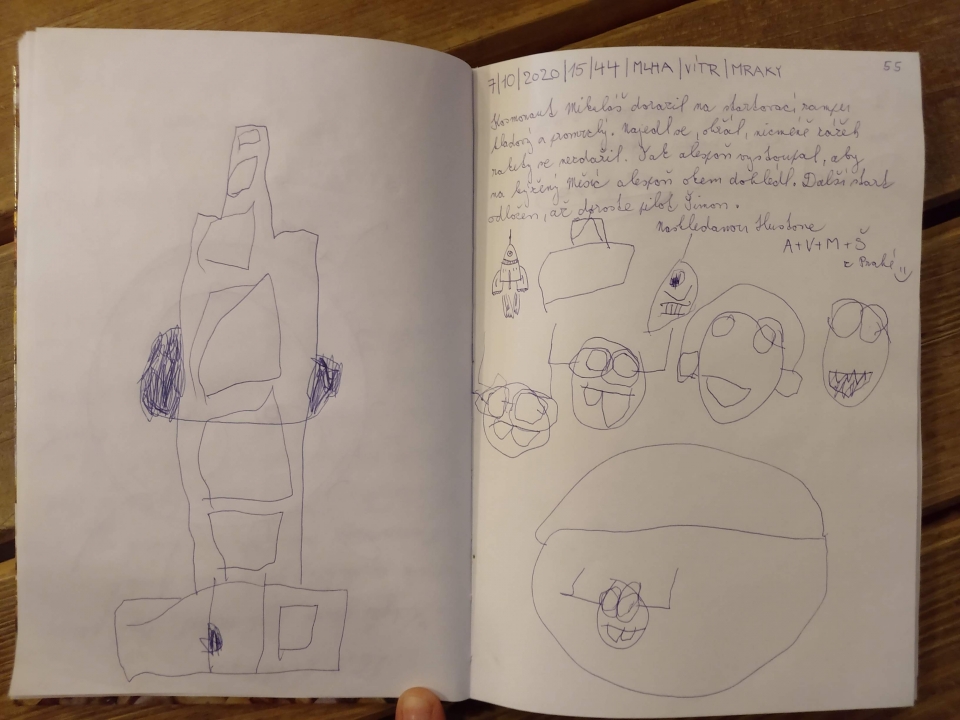 7/10/2020/15/44/MLHA/VÍTR/MRAKY 55
Kosmonaut Mikuláš dorazil na startovací rampu
hladový a promrzlý. Najedl se, ohřál, nicméně zážeh
rakety se nezdařil. Tak alespoň vystoupal, aby
na kýžený Měsíc alespoň okem dohlédl. Další start
odložen, až doroste pilot Šimon.
Nashledanou Hustone
A+V+M+Š
z Prahy